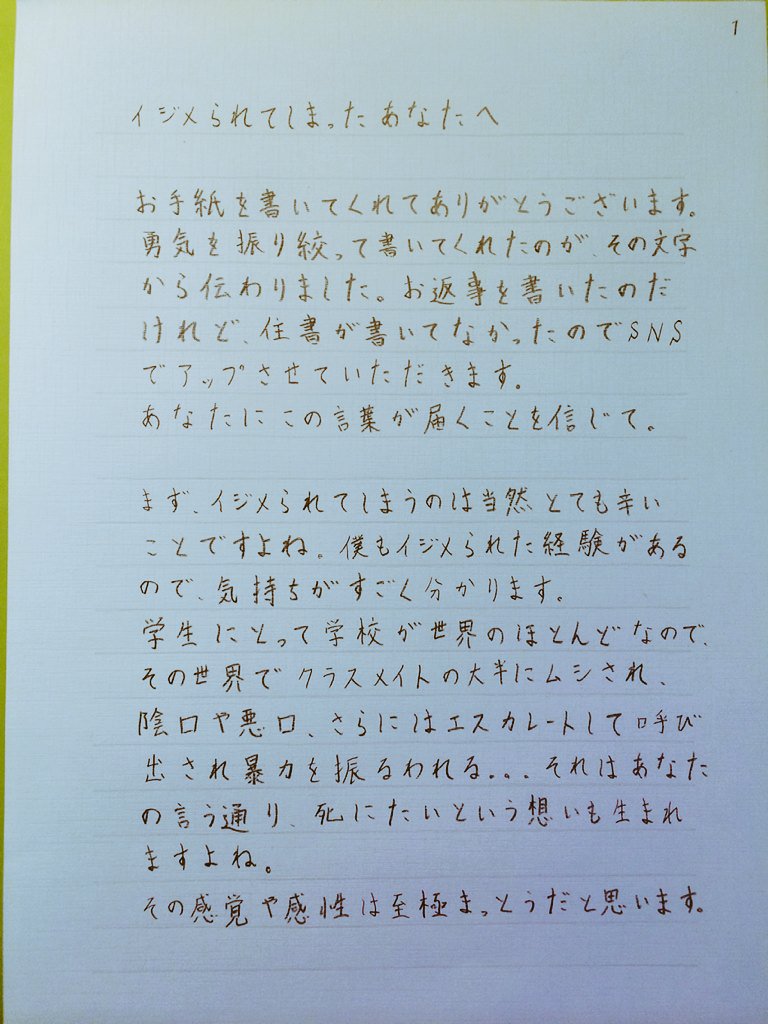 1
イジメられてしまったあなたへ
お手紙を書いてくれてありがとうございます。
勇気を振り絞って書いてくれたのが、その文字
から伝わりました。お返事を書いたのだ
けれど、住書が書いてなかったのでSNS
でアップさせていただきます。
あなたにこの言葉が届くことを信じて。
まず、イジメられてしまうのは当然とても辛い
ことですよね。僕もイジメられた経験がある
ので、気持ちがすごく分かります。
学生にとって学校が世界のほとんどなので、
その世界でクラスメイトの大半にムシされ、
陰口や悪口、さらにはエスカレートして呼び
出され暴力を振るわれる...それはあなた
の言う通り、死にたいという想いも生まれ
ますよね。
その感覚や感性は至極まっとうだと思います。